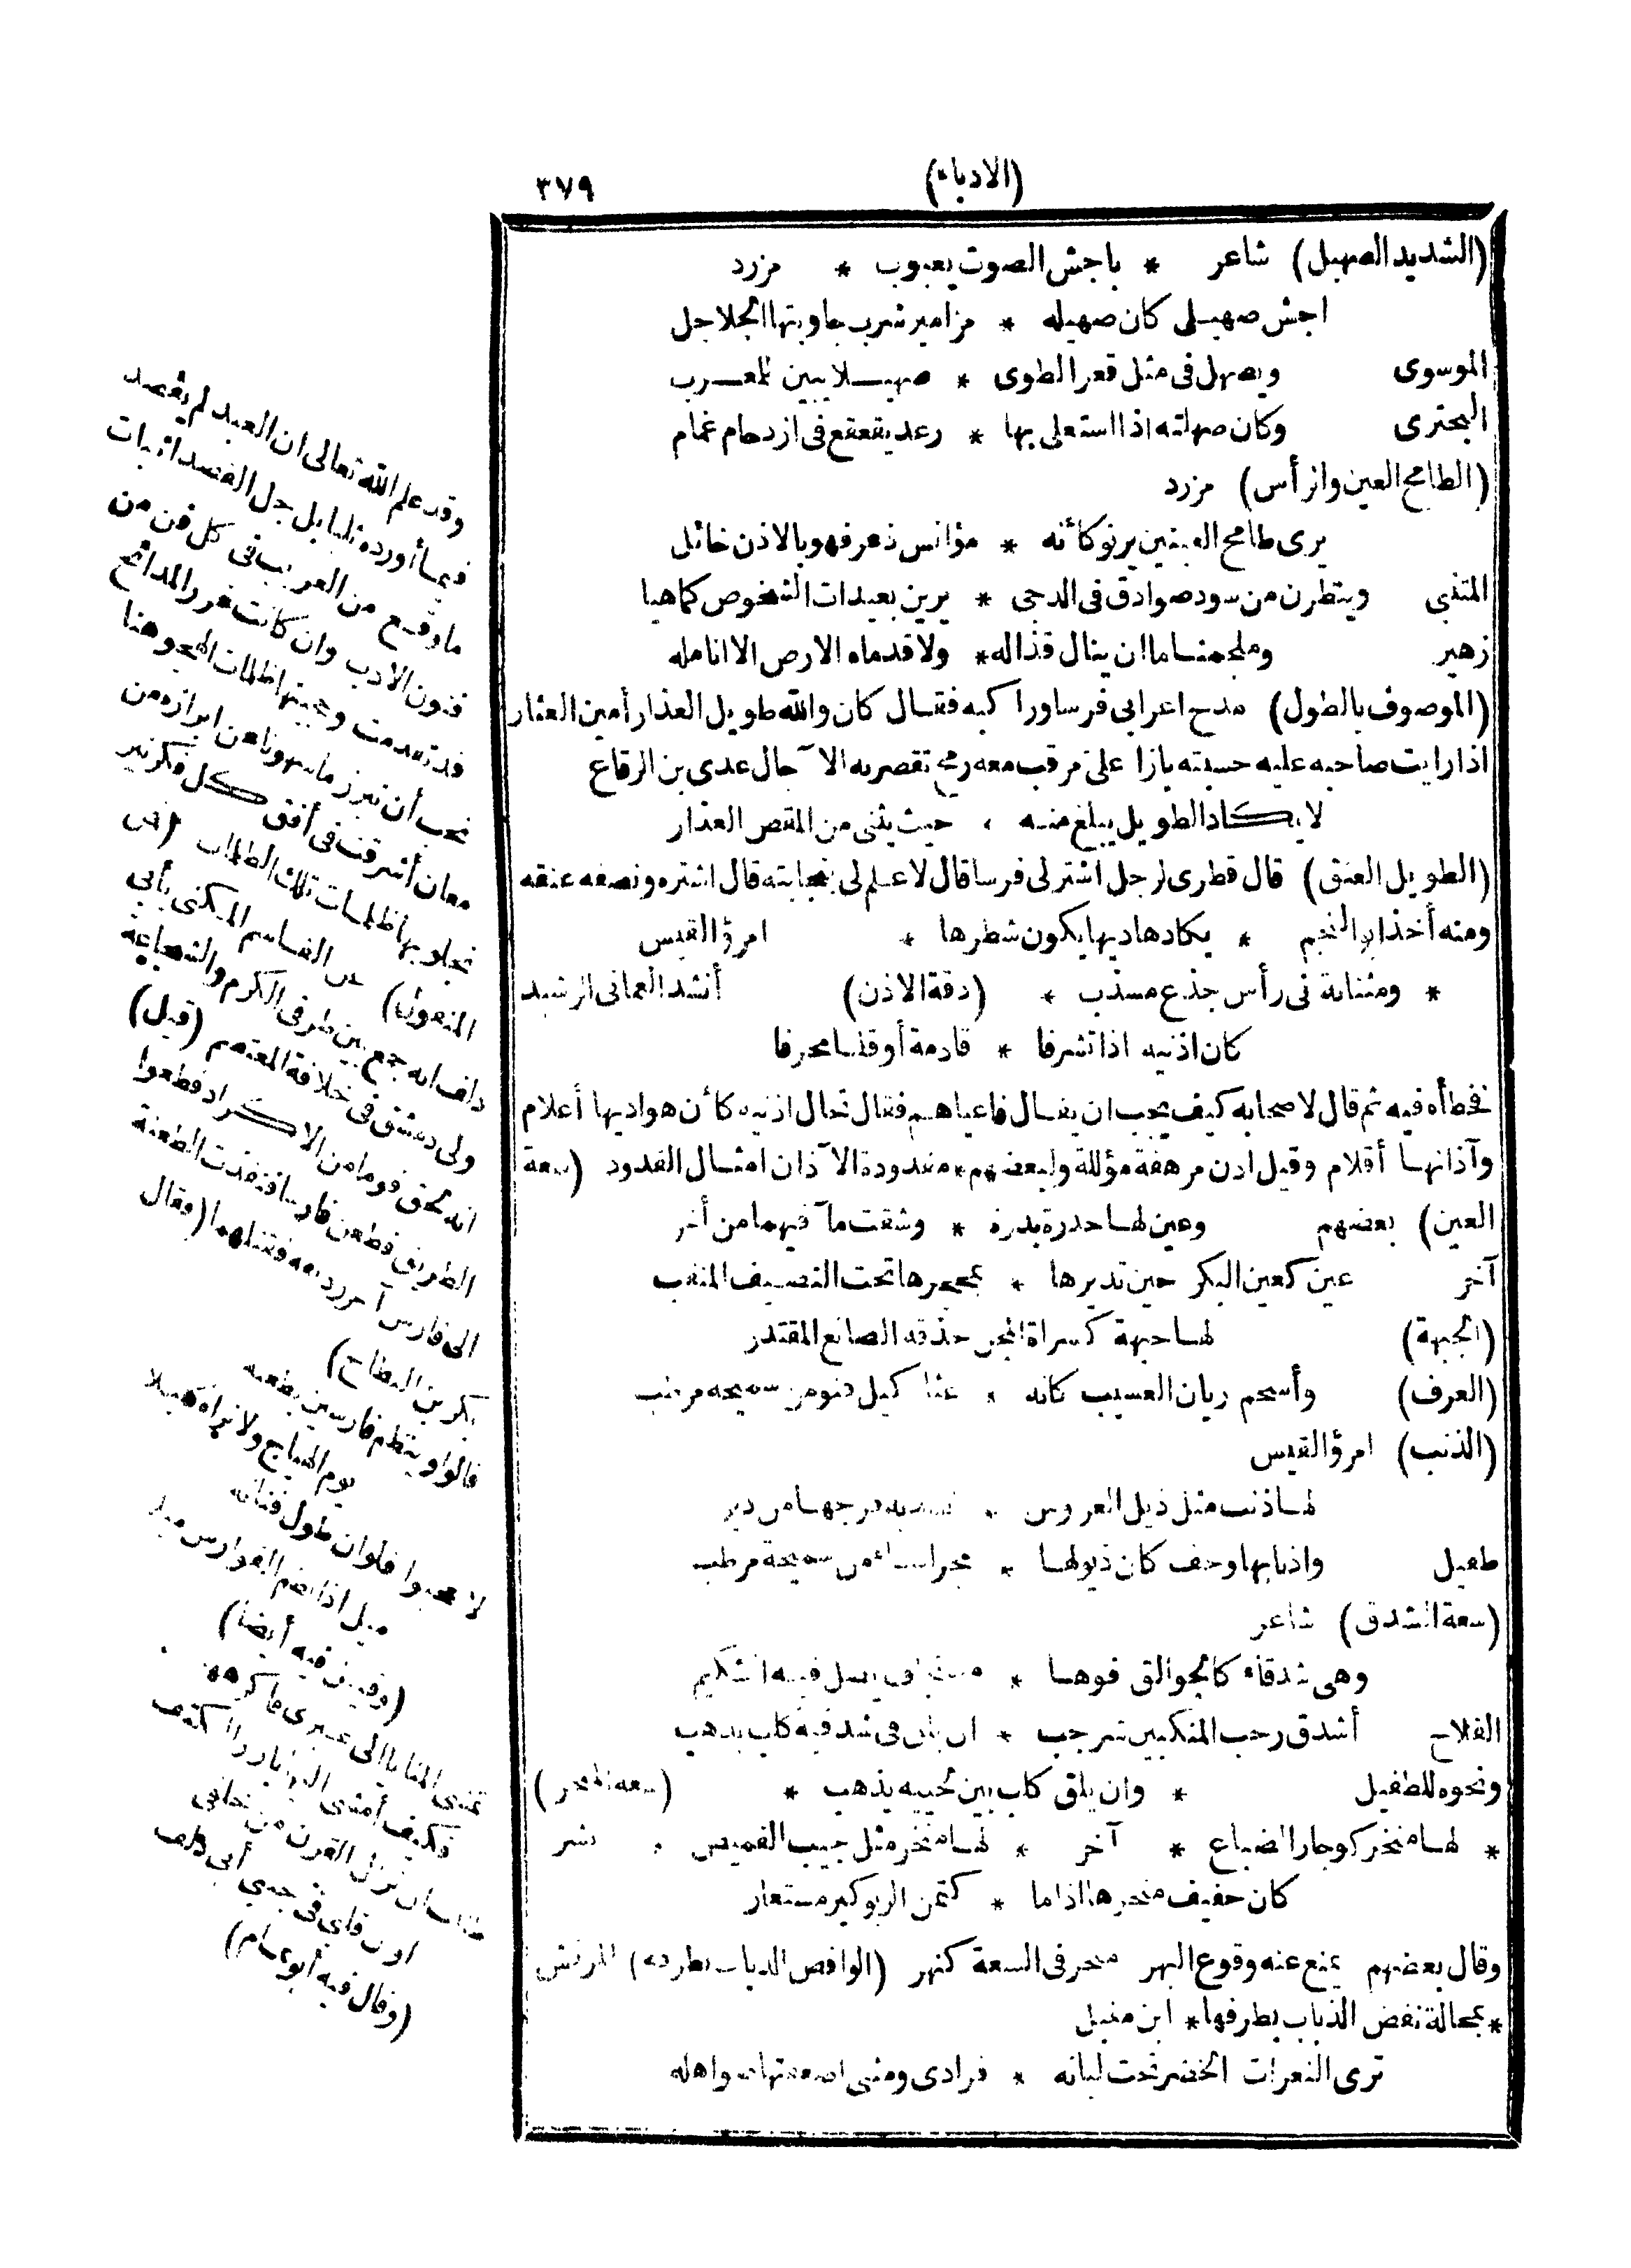 (الادباء)
٣٧٩
(الشديد الصهيل) شاعر * باجش الصوت يعبوب * مزرد
اجش صهيلى كان صهيله * مزامير شرب جاوبتها الجلاجل
الموسوى ويصهل فى مثل قعر الطوى * صهيلا يبين للمعرب
البحترى وكان صهلته اذا استعلى بها * رعد يقعقع فى ازدحام غمام
(الطامح العين والرأس) مزرد
يرى طامح العينين يرنو كأنه * مؤانس ذعر فهو بالاذن خائل
المتنبى وينظرن من سود صوادق فى الدجى * يرين بعيدات الشخوص كماهيا
زهير وملجمنا ما ان ينال قذاله * ولا قدماه الارض الا انامله
(الموصوف بالطول) مدح اعرابى فرسا وراكبه فقال كان والله طويل العذار أمين العثار
اذا رايت صاحبه عليه حسبته بازا على مرقب معه رمح تقصر به الآجال عدى بن الرقاع
لا يكاد الطويل يبلغ منه ، حيث يثنى من المقص العذار
(الطويل العنق) قال قطرى لرجل اشتر لى فرسا قال لا علم لى بنجابته قال اشتره ونصفه عنقه
ومنه أخذ ابو النجم * يكاد هاديها يكون شطرها * امرؤ القيس
* ومثناية فى رأس جذع مشذب * (دقة الاذن) أنشد العمانى الرشيد
كان اذنيه اذا تشرفا * قادمة أو قلما محرفا
فخطأه فيه ثم قال لاصحابه كيف يجب ان يقال فاعياهم فقال تخال اذنيه كأن هواديها أعلام
وآذانها أقلام وقيل اذن مرهفة مؤللة ولبعضهم * مقدودة الآذان امثال القدود (سعة
العين) بعضهم وعين لها حدرة بدرة * وشقت مآقيهما من أخر
آخر عين كعين البكر حين تديرها * بمحجرها تحت النصيف المنقب
(الجبهة) لها جبهة كسراة المجن حذقه الصانع المقتدر
(العرف) وأسحم ريان العسيب كانه * عثاكيل قنو من سميحة مرطب
(الذنب) امرؤ القيس
لها ذنب مثل ذيل العروس * تسد به فرجها من دبر
طفيل واذنابها وحف كان ذيولها * مجر اشاء من سميحة مرطب
(سعة الشدق) شاعر
وهى شدقاء كالجوالق فوها * مستجاف يضل فيه الشكيم
الفلاح أشدق رحب المنكبين شرجب * ان يلق فى شدقيه كلب يذهب
ونحوه للطفيل * وان يلق كلب بين لحييه يذهب * (سعة المنخر)
* لها منخر كوجار الضباع * آخر * لها منخر مثل جيب القميص . بشر
كان حفيف منخرها اذا ما * كتمن الربو كير مستعار
وقال بعضهم يمنع عنه وقوع البهر منخر فى السعة كنهر (الواقص الذباب بطرفه) المرقش
* بمحالة تقص الذباب بطرفها * ابن مقبل
ترى النعرات الخضر تحت لبانه * فرادى ومثنى اصعقتها صواهله
وقد علم الله تعالى ان العبد لم يقصد
فيما أورده ثلبا بل جل القصد اثبات
ما وقع من الغريب فى كل فن من
فنون الادب وان كانت غرر المدائح
قد تقدمت وحجبتها ظلمات الهجو وهنا
نحب أن نبرز ما سهونا عن ابرازه من
معان أشرقت فى أفق كل فكر نير
نجلو بها ظلمات تلك الطلمات (فمن
المنقول) عن القاسم المكنى بأبى
دلف انه جمع بين طرفى الكرم والشجاعة
ولى دمشق فى خلافة المعتصم (قيل)
انه لحق قوما من الاكراد قطعوا
الطريق فطعن فارسا فنفذت الطعنة
الى فارس آخر رديفه فقتلهما (وقال
بكر بن النطاح)
قالوا وينظم فارسين بطعنة
يوم الهياج ولا يراه كليلا
لا تعجبوا فلو ان طول قناته
ميل اذا نظم الفوارس ميلا
(وقيل فيه أيضا)
تمشى المنايا الى غيرى فاكرهها
فكيف أمشى اليها بارز الكتف
ظننت ان نزال القرن من خلقى
او ان قلبى فى جنبى أبى دلف
(وقال فيه أبو تمام)